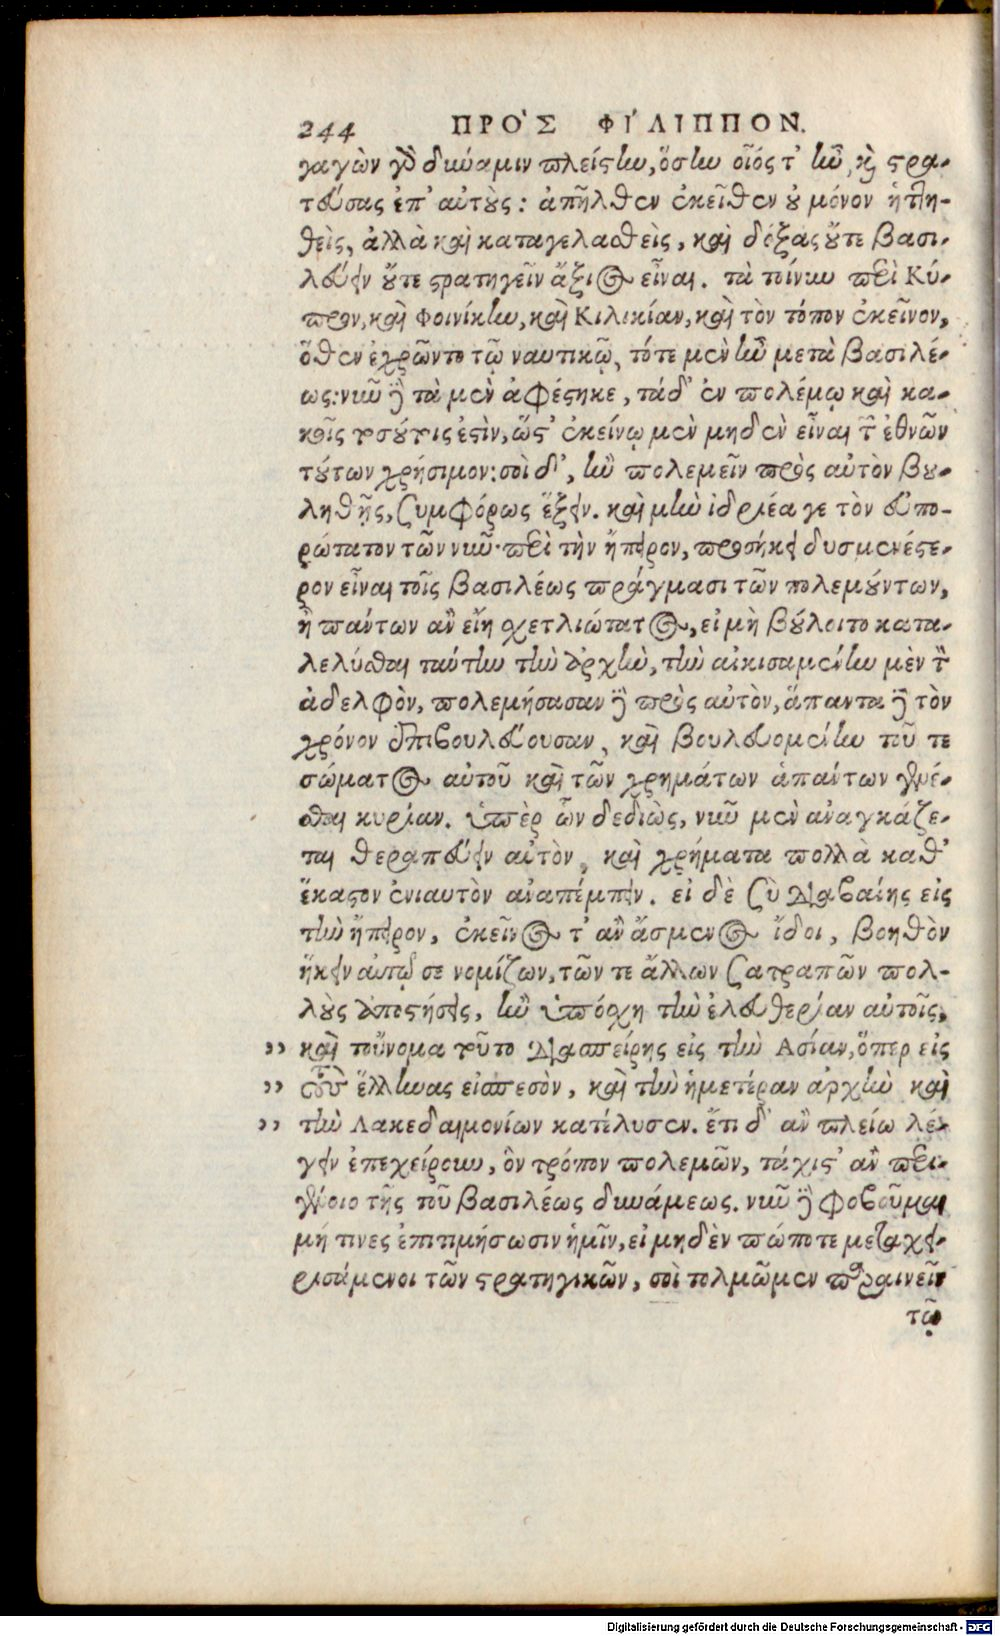 244 ΠΡΟ'Σ ΦΙ'ΛΙΠΠΟΝ.
γαγὼν γὸ δύναμιν πλείστην, ὅστην οἷός τ' ἦν, καὶ στρα-
τεύσας ἐπ' αὐτοὺς: ἀπῆλθεν ἐκεῖθεν οὐ μόνον ἡττη-
θεὶς, ἀλλὰ καὶ καταγελασθεὶς, καὶ δόξας οὔτε βασι-
λεύειν οὔτε στρατηγεῖν ἄξιος εἶναι. τὰ τοίνυν περὶ Κύ-
προν, καὶ Φοινίκην, καὶ Κιλικίαν, καὶ τὸν τόπον ἐκεῖνον,
ὅθεν ἐχρῶντο τῷ ναυτικῷ, τότε μὲν ἦν μετὰ βασιλέ-
ως: νῦν δὲ τὰ μὲν ἀφέστηκε, τάδ' ἐν πολέμῳ καὶ κα-
κοῖς τούτοις ἐστὶν, ὥστ' ἐκείνῳ μὲν μηδὲν εἶναι τῶν ἐθνῶν
τούτων χρήσιμον: σοὶ δ', ἢν πολεμεῖν πρὸς αὐτὸν βου-
ληθῇς, συμφόρως ἕξειν. καὶ μὴν ἰδριέα γε τὸν εὐπο-
ρώτατον τῶν νῦν περὶ τὴν ἤπειρον, προσήκει δυσμενέστε-
ρον εἶναι τοῖς βασιλέως πράγμασι τῶν πολεμούντων,
ἢ πάντων ἂν εἴη σχετλιώτατος, εἰ μὴ βούλοιτο κατα-
λελύσθαι ταύτην τὴν ἀρχὴν, τὴν αἰκισαμένην μὲν τὸν
ἀδελφὸν, πολεμήσασαν δὲ πρὸς αὐτὸν, ἅπαντα δὲ τὸν
χρόνον ἐπιβουλεύουσαν, καὶ βουλευομένην τοῦ τε
σώματος αὐτοῦ καὶ τῶν χρημάτων ἁπάντων γενέ-
σθαι κυρίαν. ὑπὲρ ὧν δεδιὼς, νῦν μὲν ἀναγκάζε-
ται θεραπεύειν αὐτὸν, καὶ χρήματα πολλὰ καθ'
ἕκαστον ἐνιαυτὸν ἀναπέμπειν. εἰ δὲ σὺ διαβαίης εἰς
τὴν ἤπειρον, ἐκεῖνος τ' ἂν ἄσμενος ἴδοι, βοηθὸν
ἥκειν αὐτῷ σε νομίζων, τῶν τε ἄλλων σατραπῶν πολ-
λοὺς ἀποστήσεις, ἢν ὑπόσχῃ τὴν ἐλευθερίαν αὐτοῖς,
›› καὶ τοὔνομα τοῦτο διασπείρῃς εἰς τὴν Ἀσίαν, ὅπερ εἰς
›› τοὺς ἕλληνας εἰσπεσὸν, καὶ τὴν ἡμετέραν ἀρχὴν καὶ
›› τὴν Λακεδαιμονίων κατέλυσεν. ἔτι δ' ἂν πλείω λέ-
γειν ἐπεχείρουν, ὃν τρόπον πολεμῶν, τάχιστ' ἂν περι-
γένοιο τῆς τοῦ βασιλέως δυνάμεως. νῦν δὲ φοβοῦμαι
μή τινες ἐπιτιμήσωσιν ἡμῖν, εἰ μηδὲν πώποτε μεταχει-
ρισάμενοι τῶν στρατηγικῶν, σοὶ τολμῶμεν παραινεῖν
τῷ
Digitalisierung gefördert durch die Deutsche Forschungsgemeinschaft - DFG